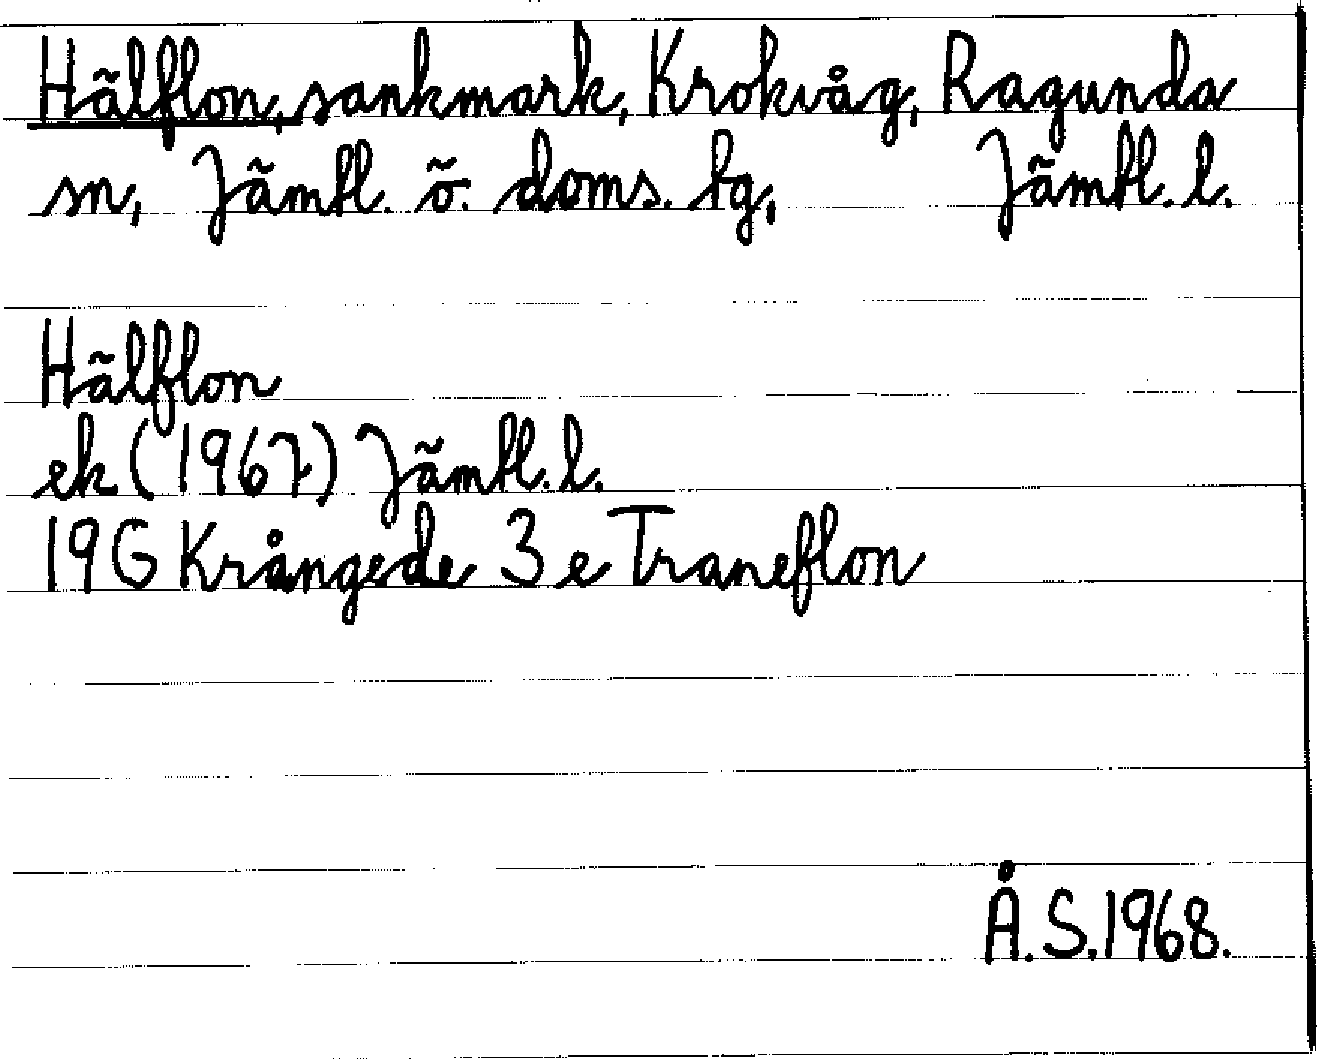 Hälflon, sankmark, Krokvåg, Ragunda
sn, Jämtl. ö. doms. tg, Jämtl. l.
Hälflon
ek (1967) Jämtl. l.
19G Krångede 3 e Traneflon
Å. S. 1968.